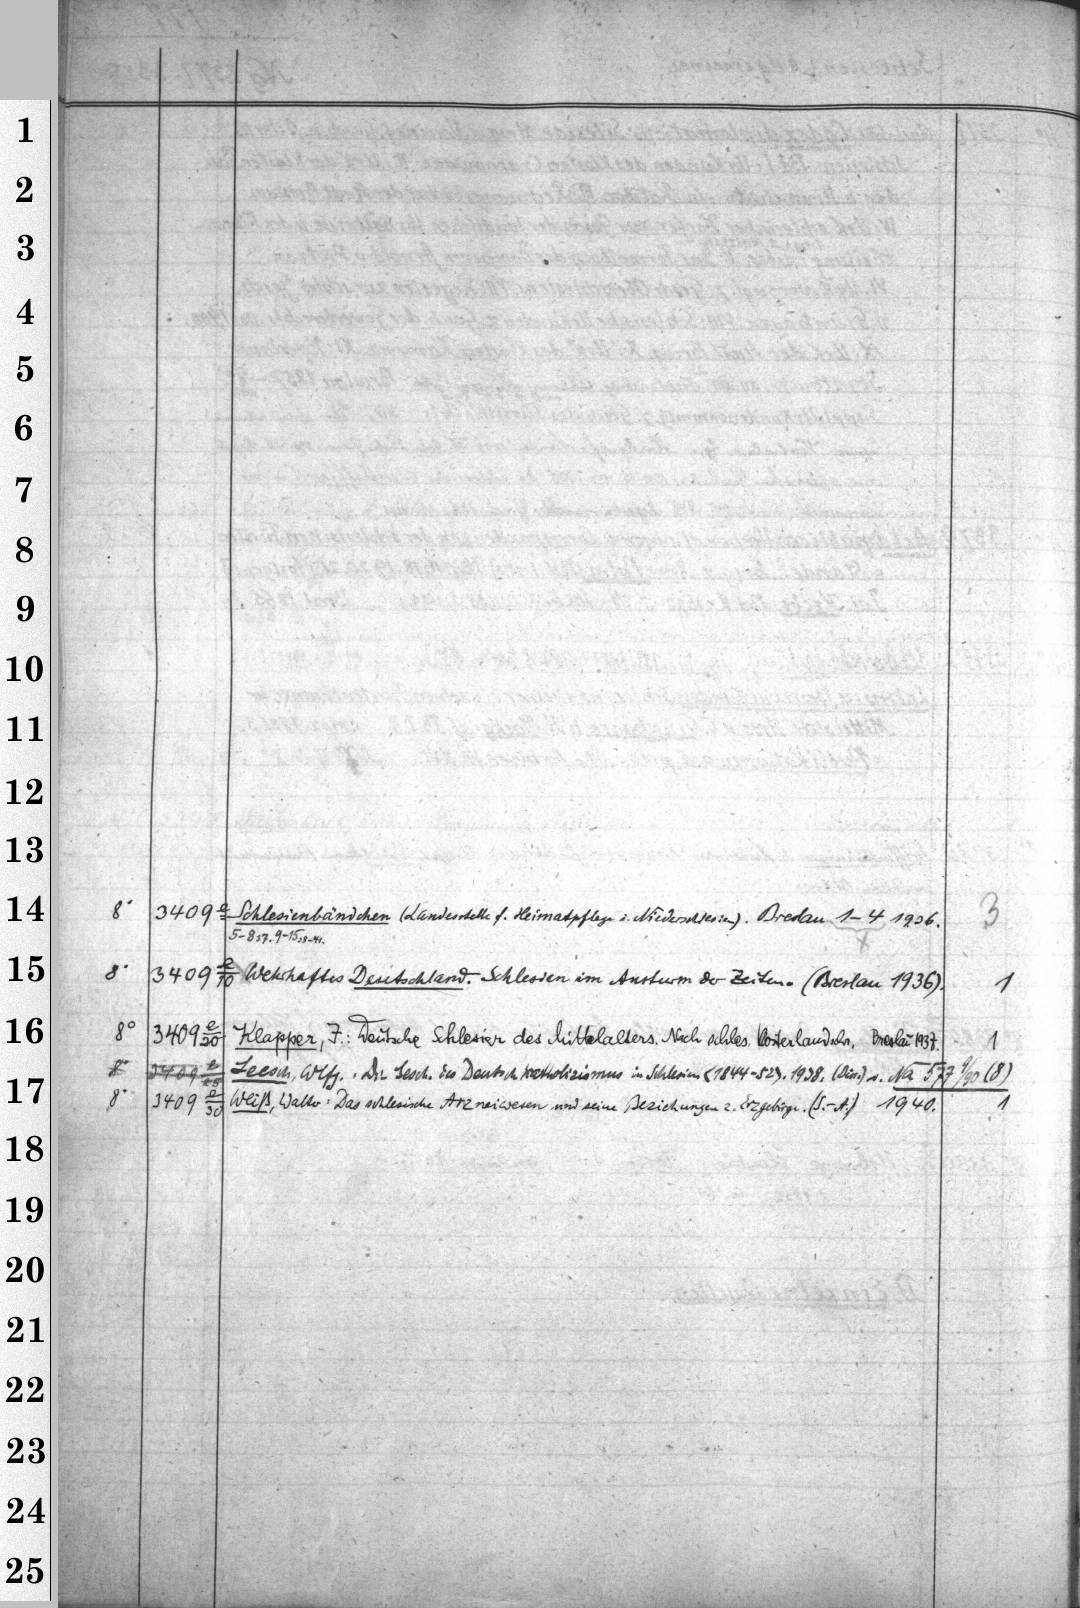 1
2
3
4
5
6
7
8
9
10
11
12
13
14
8° 3409 e Schlesienbändchen (Landesstelle f. Heimatpflege i. Niederschlesien). Breslau 1-4 1936. 3
5-8 37. 9-15 38-41. x
15
8° 3409 e/10 Wehrhaftes Deutschland. Schlesien im Ansturm der Zeiten. (Breslau 1936). 1
16
8° 3409 e/20 Klapper, J.: Deutsche Schlesier des Mittelalters. Nach schles. Breslau 1937. 1
8° 3409 e/25 Leesch, Wlfg.: Die Gesch. des Deutschkatholizismus in Schlesien (1844-52). 1938. (Diss.) s. Na 577 /90 (8)
17
8° 3409 e/30 Weiß, Walter: Das schlesische Arzneiwesen und seine Beziehungen z. Erzgebirge. (S.-A.) 1940. 1
18
19
20
21
22
23
24
25